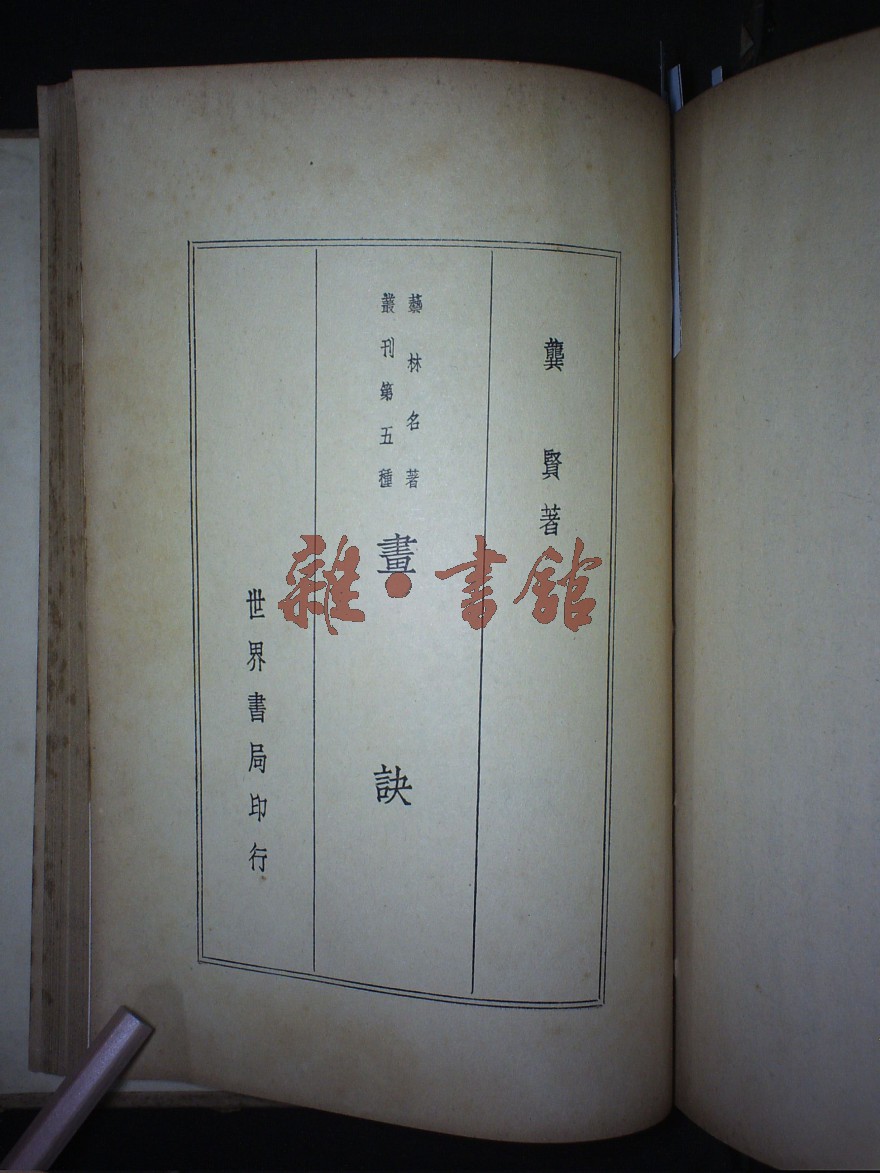 龔賢著
藝林名著
叢刊第五種
畫訣
世界書局印行
雜·書館